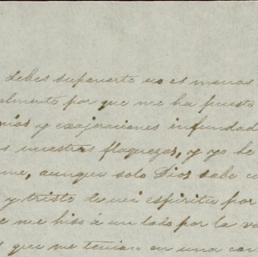 debes suponerte no es menos
almente por que me ha puesto
nías y exajeraciones infundad
s nuestras flaquezas, y yo de
me, aunque solo Dios sabe c
y triste de mi espiritu por
e me hiso á un lado por la v
s que me tenian en una con